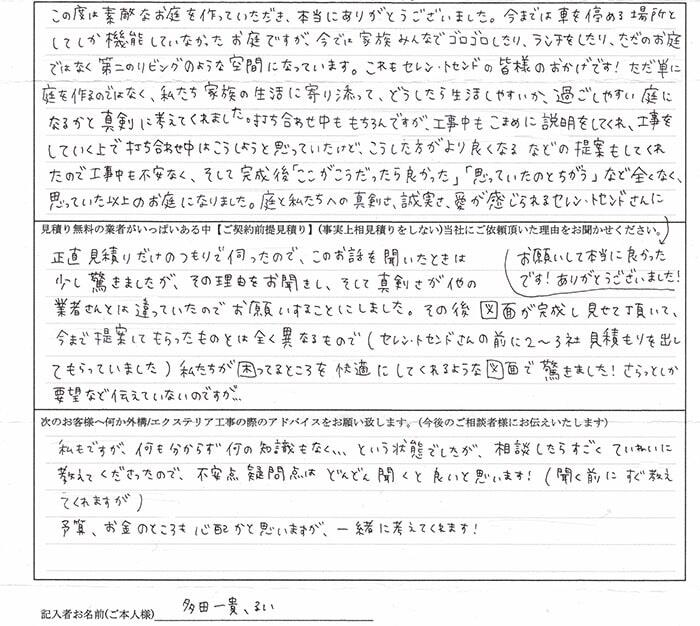 この度は素敵なお庭を作っていただき、本当にありがとうございました。今までは車を停める場所と
してしか機能していなかったお庭ですが、今では家族みんなでゴロゴロしたり、ランチをしたり、ただのお庭
ではなく第二のリビングのような空間になっています。これもセレン・トセンドの皆様のおかげです！ただ単に
庭を作るのではなく、私たち家族の生活に寄り添って、どうしたら生活しやすいか、過ごしやすい庭に
なるかと真剣に考えてくれました。打ち合わせ中ももちろんですが、工事中もこまめに説明をしてくれ、工事を
していく上で打ち合わせ中はこうしようと思っていたけど、こうした方がより良くなるなどの提案もしてくれ
たので工事中も不安なく、そして完成後「ここがこうだったら良かった」「思っていたのとちがう」など全くなく、
思っていた以上のお庭になりました。庭と私たちへの真剣さ、誠実さ、愛が感じられるセレン・トセンドさんに
お願いして本当に良かった
です！ありがとうございました！
見積り無料の業者がいっぱいある中【ご契約前提見積り】(事実上相見積りをしない)当社にご依頼頂いた理由をお聞かせください。
正直見積りだけのつもりで伺ったので、このお話を聞いたときは
少し驚きましたが、その理由をお聞きし、そして真剣さが他の
業者さんとは違っていたのでお願いすることにしました。その後図面が完成し見せて頂いて、
今まで提案してもらったものとは全く異なるもので（セレン・トセンドさんの前に2〜3社見積もりを出し
てもらっていました）私たちが困ってるところを快適にしてくれるような図面で驚きました！さらっとしか
要望など伝えていないのですが…
次のお客様へ何か外構/エクステリア工事の際のアドバイスをお願い致します。(今後のご相談者様にお伝えいたします)
私もですが、何も分からず何の知識もなく、、、という状態でしたが、相談したらすごくていねいに
教えてくださったので、不安点疑問点はどんどん聞くと良いと思います！（聞く前にすぐ教え
てくれますが）
予算、お金のところも心配かと思いますが、一緒に考えてくれます！
記入者お名前(ご本人様) 多田一貴、るい